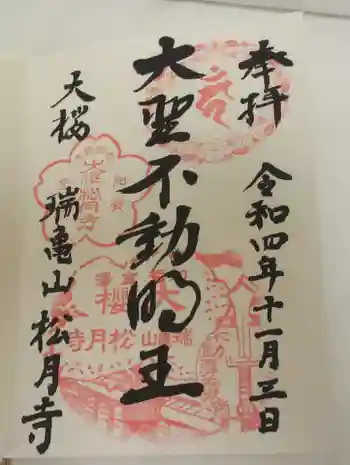 奉拝
令和四年十一月三日
大聖不動明王
大桜
瑞亀山松月寺
大櫻
瑞亀山松月寺